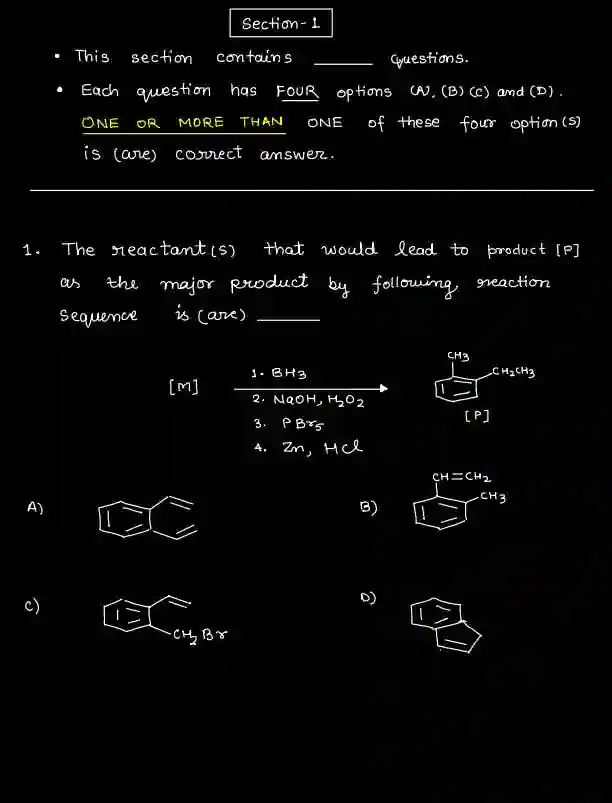 Section-1
• This section contains ______ Questions.
• Each question has FOUR options (A), (B) (C) and (D).
ONE OR MORE THAN ONE of these four option(s)
is (are) correct answer.
1. The reactant(s) that would lead to product [P]
as the major product by following reaction
Sequence is (are) ______
[M]
1. BH3
2. NaOH, H2O2
3. PBr5
4. Zn, HCl
CH3
CH2CH3
[P]
A)
B)
CH=CH2
CH3
C)
CH2Br
D)